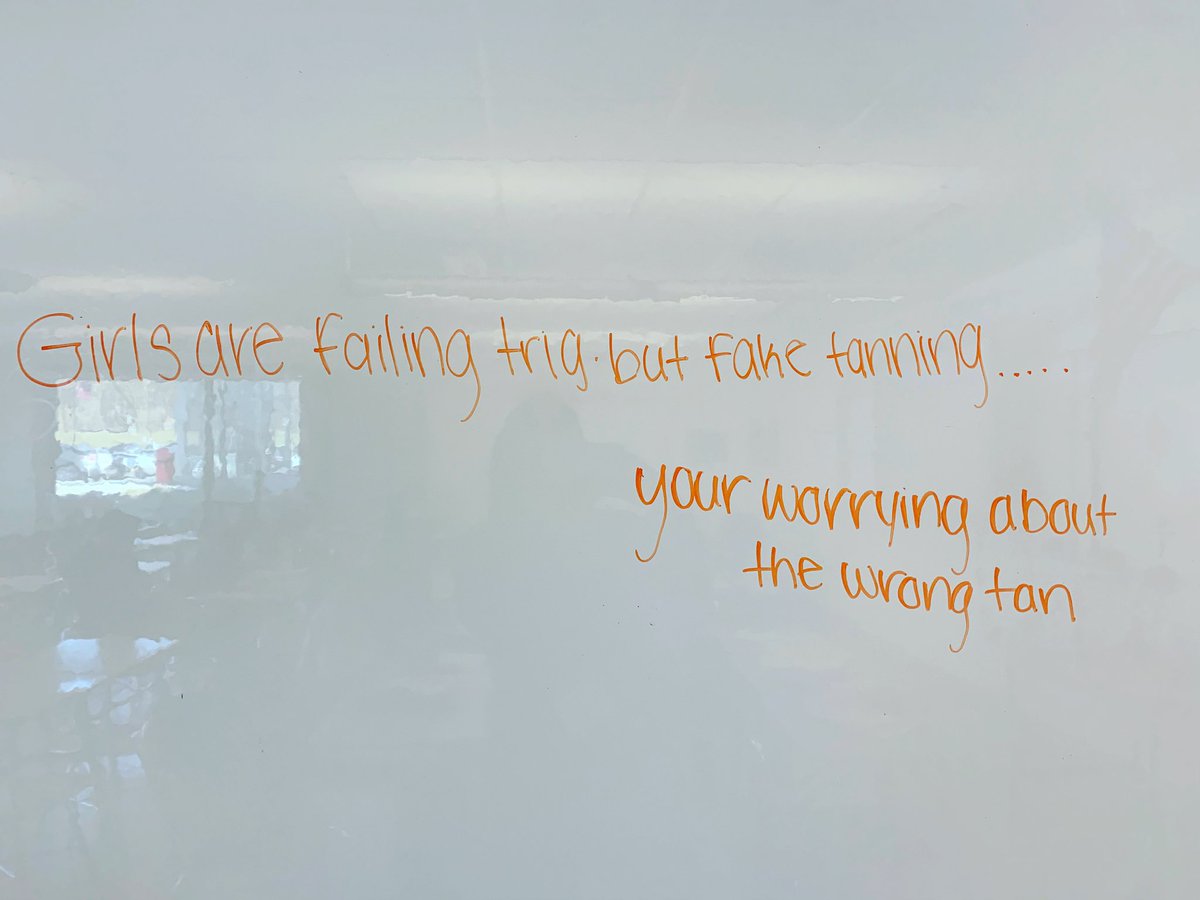 Girls are failing trig. but fake tanning.....
your worrying about
the wrong tan